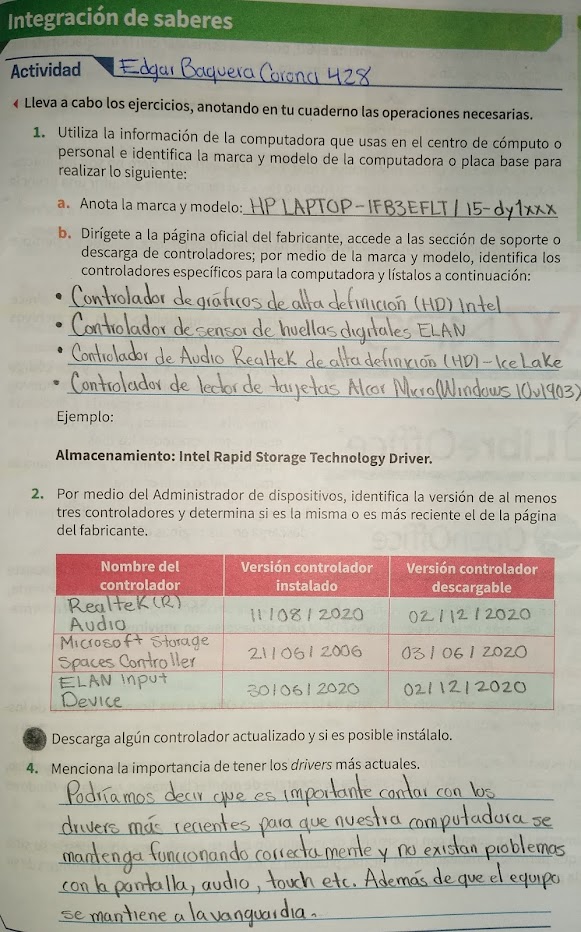 Integración de saberes
Actividad Edgar Baquera Corona 428
Lleva a cabo los ejercicios, anotando en tu cuaderno las operaciones necesarias.
1. Utiliza la información de la computadora que usas en el centro de cómputo o
personal e identifica la marca y modelo de la computadora o placa base para
realizar lo siguiente:
a. Anota la marca y modelo: HP LAPTOP-1FB3EFLT / 15-dy1xxx
b. Dirígete a la página oficial del fabricante, accede a las sección de soporte o
descarga de controladores; por medio de la marca y modelo, identifica los
controladores específicos para la computadora y lístalos a continuación:
• Controlador de gráficos de alta definición (HD) Intel
• Controlador de sensor de huellas digitales ELAN
• Controlador de Audio Realtek de alta definición (HD)-Ice Lake
• Controlador de lector de tarjetas Alcor Micro (Windows 10v1903)
Ejemplo:
Almacenamiento: Intel Rapid Storage Technology Driver.
2. Por medio del Administrador de dispositivos, identifica la versión de al menos
tres controladores y determina si es la misma o es más reciente el de la página
del fabricante.
Nombre del controlador Versión controlador instalado Versión controlador descargable
Realtek(R) Audio 11/08/2020 02/12/2020
Microsoft Storage Spaces Controller 21/06/2006 03/06/2020
ELAN Input Device 30/06/2020 02/12/2020
Descarga algún controlador actualizado y si es posible instálalo.
4. Menciona la importancia de tener los drivers más actuales.
Podríamos decir que es importante contar con los
drivers más recientes para que nuestra computadora se
mantenga funcionando correctamente y no existan problemas
con la pantalla, audio, touch etc. Además de que el equipo
se mantiene a la vanguardia.